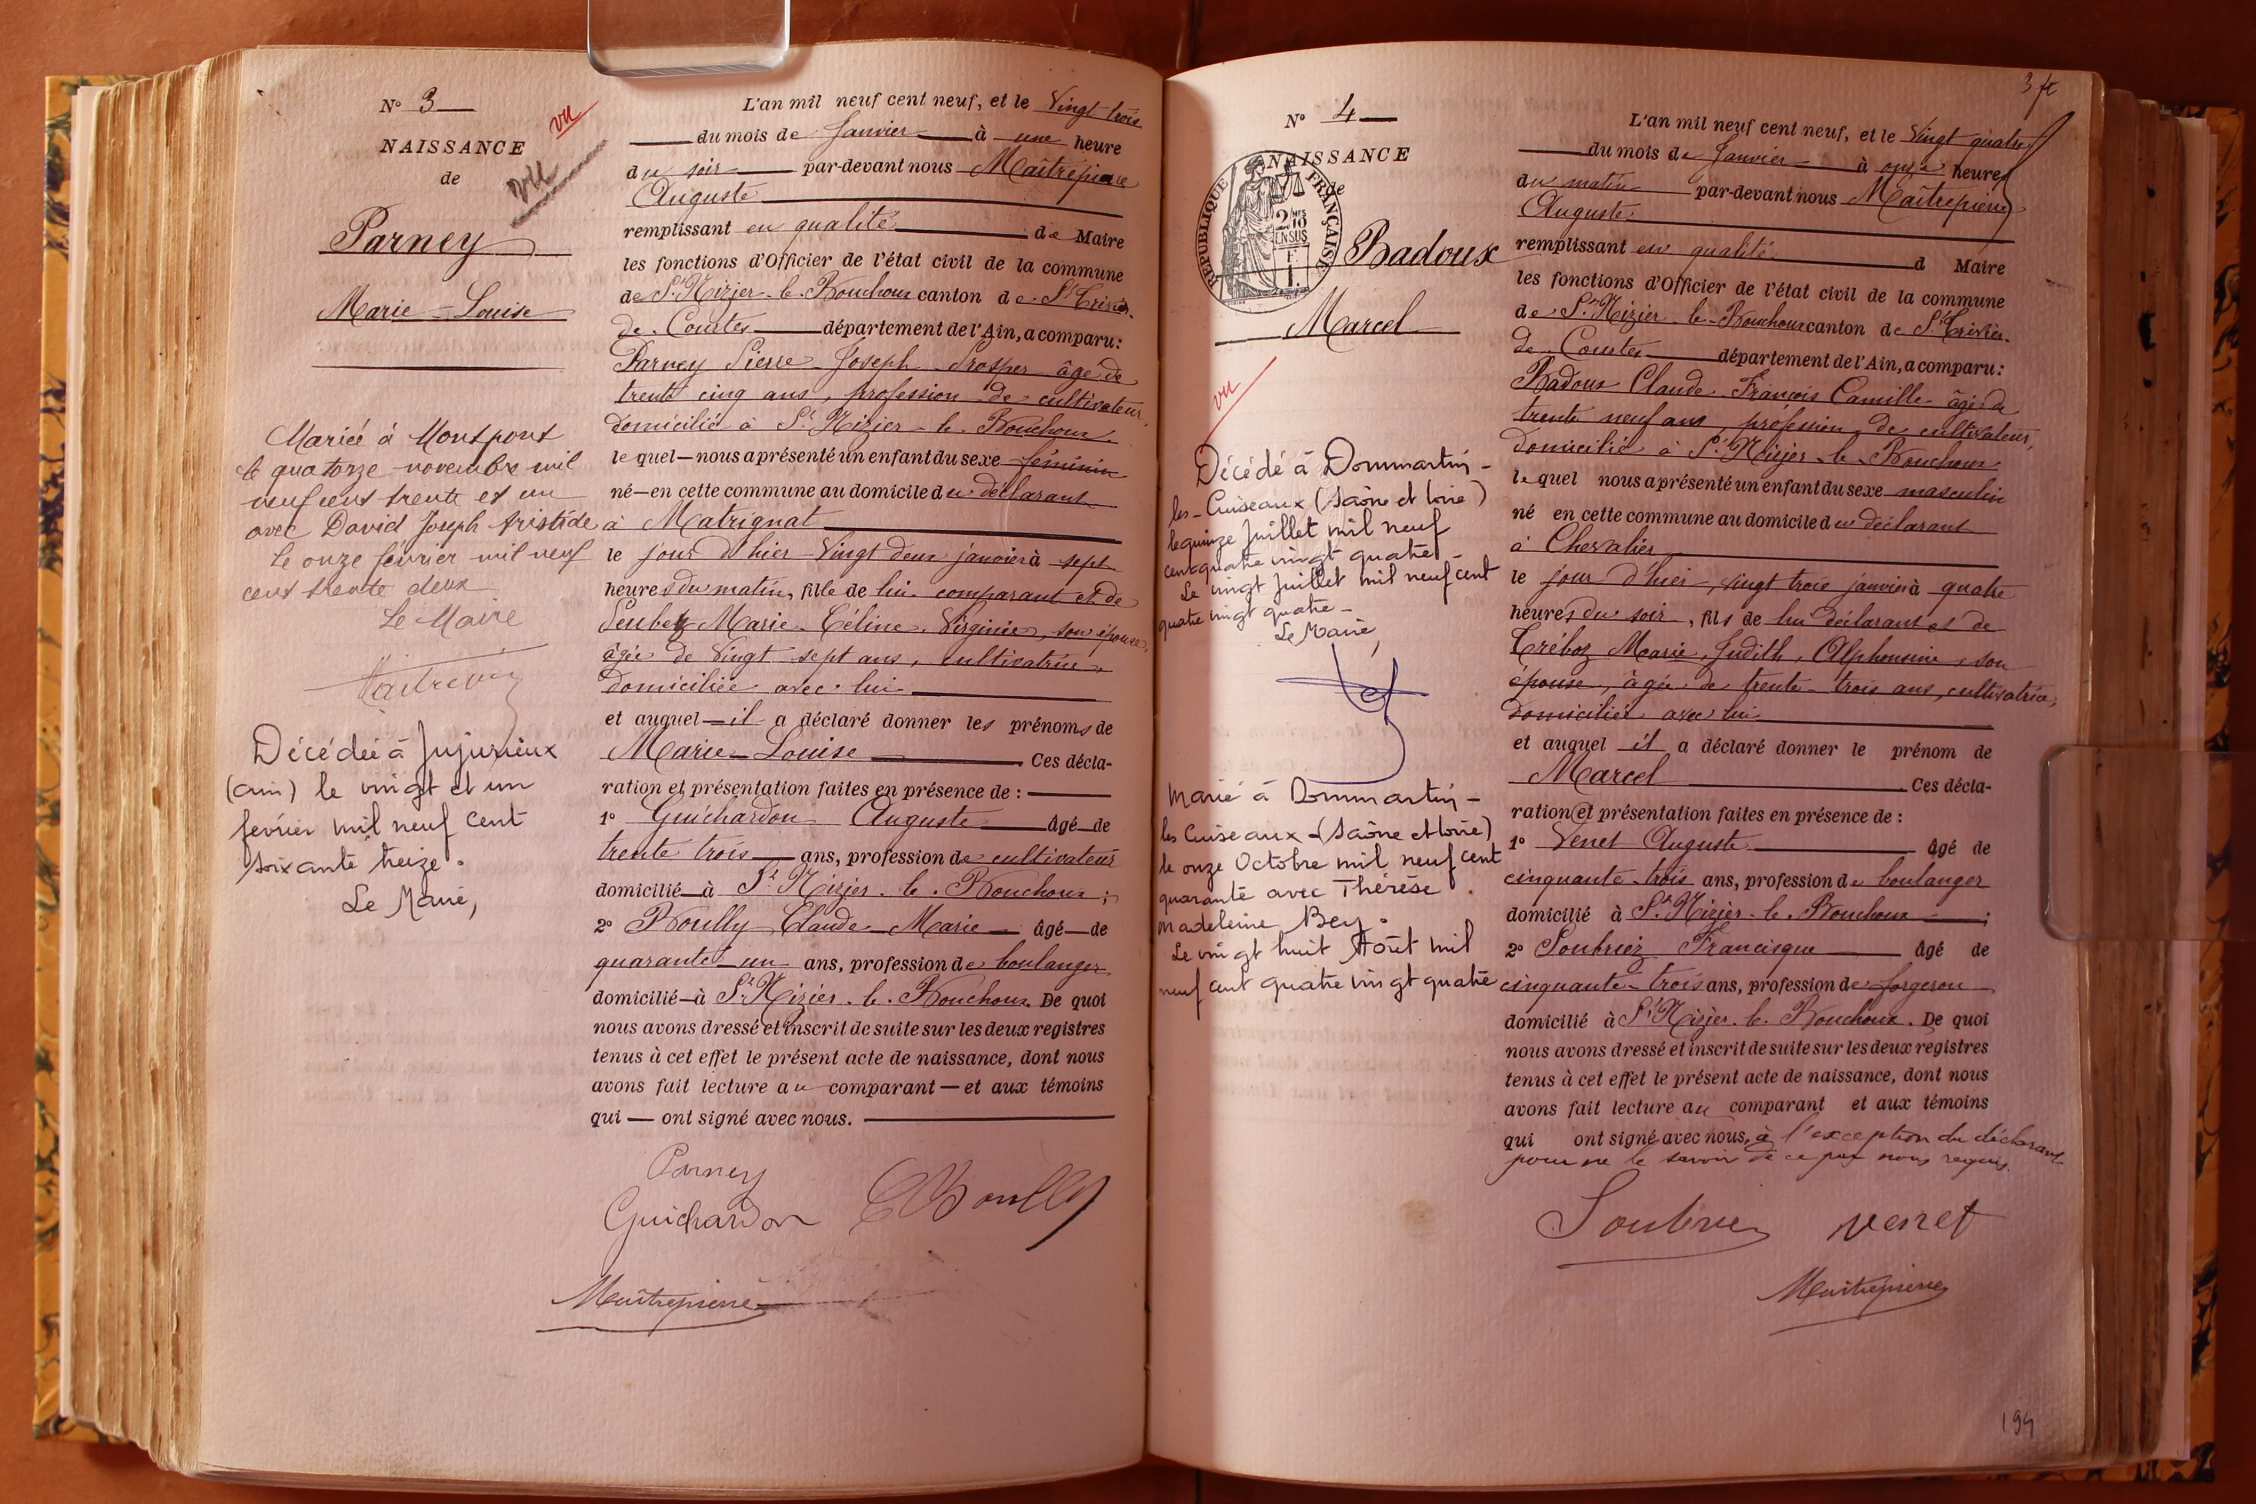 N° 3
NAISSANCE
de
Parney
Marie-Louise
vu
vu
Mariée à Montpont
le quatorze novembre mil
neuf cent trente et un
avec David Joseph Aristide
Le onze février mil neuf
cent trente deux
Le Maire
Décédée à Jujurieux
(ain) le vingt et un
février mil neuf cent
soixante treize.
Le Maire,
L'an mil neuf cent neuf, et le Vingt trois
du mois de Janvier à une heure
du soir par-devant nous Maîtrepierre
Auguste
remplissant en qualité de Maire
les fonctions d'Officier de l'état civil de la commune
de St Nizier-le-Bouchoux canton de St Trivier-
de-Courtes département de l'Ain, a comparu:
Parney Pierre-Joseph-Prosper âgé de
trente cinq ans, profession de cultivateur,
domicilié à St Nizier-le-Bouchoux
le quel nous a présenté un enfant du sexe féminin
né en cette commune au domicile du déclarant
à Matrignat
le jour d'hier Vingt deux janvier à sept
heures du matin, fille de lui comparant et de
Marie-Céline-Virginie, son épouse,
âgée de Vingt sept ans, cultivatrice,
domiciliée avec lui
et auquel il a déclaré donner les prénoms de
Marie-Louise Ces décla-
ration et présentation faites en présence de:
1° Guichardon Auguste âgé de
trente trois ans, profession de cultivateur
domicilié à St Nizier-le-Bouchoux;
2° Boully Claude-Marie âgé de
quarante-un ans, profession de boulanger
domicilié à St Nizier-le-Bouchoux. De quoi
nous avons dressé et inscrit de suite sur les deux registres
tenus à cet effet le présent acte de naissance, dont nous
avons fait lecture au comparant et aux témoins
qui ont signé avec nous.
Parney
Guichardon CBoully
Maîtrepierre
3 ft
N° 4
NAISSANCE
de
REPUBLIQUE FRANÇAISE
Badoux
Marcel
vu
Décédé à Dommartin-
les-Cuiseaux (Saône et Loire)
le quinze Juillet mil neuf
cent quatre vingt quatre-
Le vingt juillet mil neuf cent
quatre vingt quatre-
Le Maire,
Marié à Dommartin-
les Cuiseaux-(Saône et Loire)
le onze Octobre mil neuf cent
quarante avec Thérèse
Madeleine Bey.
Le vingt huit Août mil
neuf cent quatre vingt quatre
L'an mil neuf cent neuf, et le Vingt quatre
du mois de Janvier à onze heures
du matin par-devant nous Maîtrepierre
Auguste
remplissant en qualité d Maire
les fonctions d'Officier de l'état civil de la commune
de St Nizier-le-Bouchoux canton de St Trivier-
de-Courtes département de l'Ain, a comparu:
Badoux Claude-François Camille âgé de
trente neuf ans, profession de cultivateur,
domicilié à St Nizier-le-Bouchoux
le quel nous a présenté un enfant du sexe masculin
né en cette commune au domicile du déclarant
à Chevalier
le jour d'hier, vingt trois janvier à quatre
heures du soir, fils de lui déclarant et de
Tréboz Marie, Judith, Alphonsine, son
épouse, âgée de trente-trois ans, cultivatrice,
domiciliée avec lui
et auquel il a déclaré donner le prénom de
Marcel Ces décla-
ration et présentation faites en présence de:
1° Venet Auguste âgé de
cinquante-trois ans, profession de boulanger
domicilié à St Nizier-le-Bouchoux;
2° Soubriez Francisque âgé de
cinquante-trois ans, profession de forgeron
domicilié à St Nizier-le-Bouchoux. De quoi
nous avons dressé et inscrit de suite sur les deux registres
tenus à cet effet le présent acte de naissance, dont nous
avons fait lecture au comparant et aux témoins
qui ont signé avec nous, à l'exception du déclarant
pour ne le savoir de ce par nous requis.
Soubriez Venet
Maîtrepierre
194